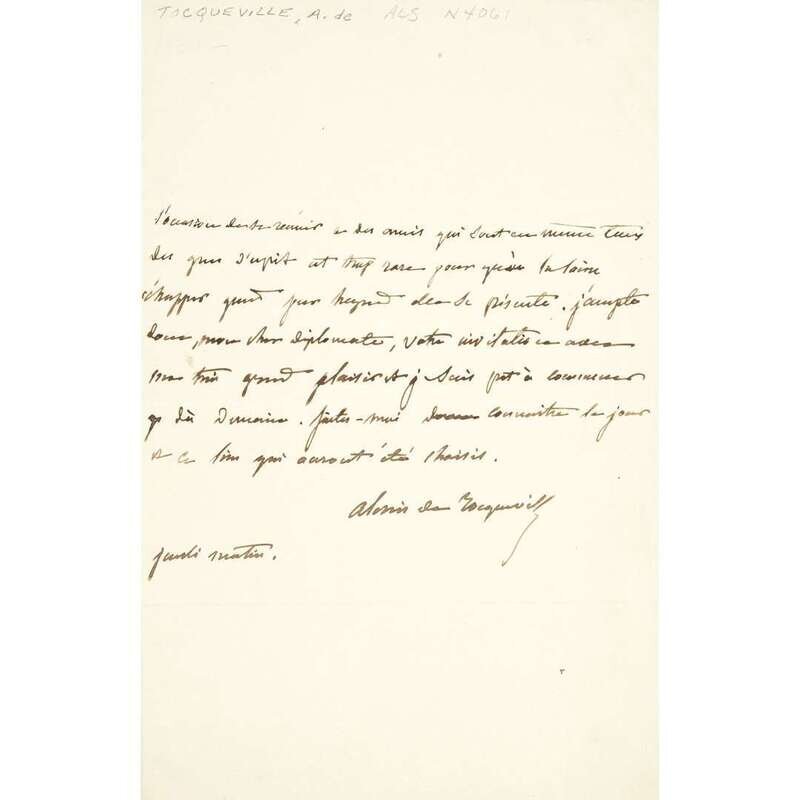 TOCQUEVILLE, A. de ALS N4061
l'occasion de se réunir à des amis qui sont en même temps
des gens d'esprit est trop rare pour qu'on la laisse
échapper quand par hazard elle se présente. j'accepte
donc, mon cher diplomate, votre invitation avec
un très grand plaisir et je suis prêt à commencer
dès Dimanche. faites-moi connaître le jour
et le lieu qui auront été choisis.
Alexis de Tocqueville
jeudi matin.